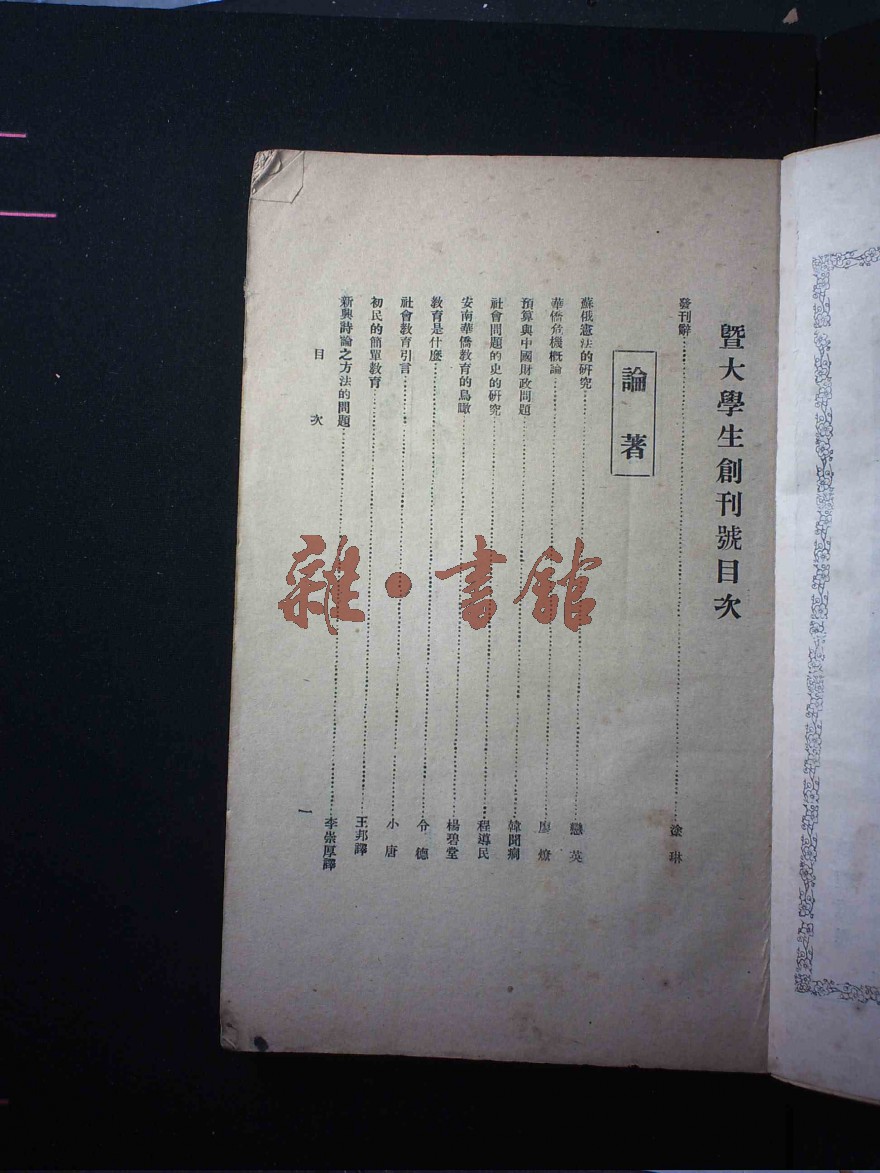 暨大學生創刊號目次
發刊辭……涂琳
論著
蘇俄憲法的研究……戀英
華僑危機概論……廖燎
預算與中國財政問題……韓聞痌
社會問題的史的研究……程導民
安南華僑教育的鳥瞰……楊碧堂
教育是什麼……令德
社會教育引言……小唐
初民的簡單教育……王邦譯
新興詩論之方法的問題……李崇厚譯
目次
一
雜·書館